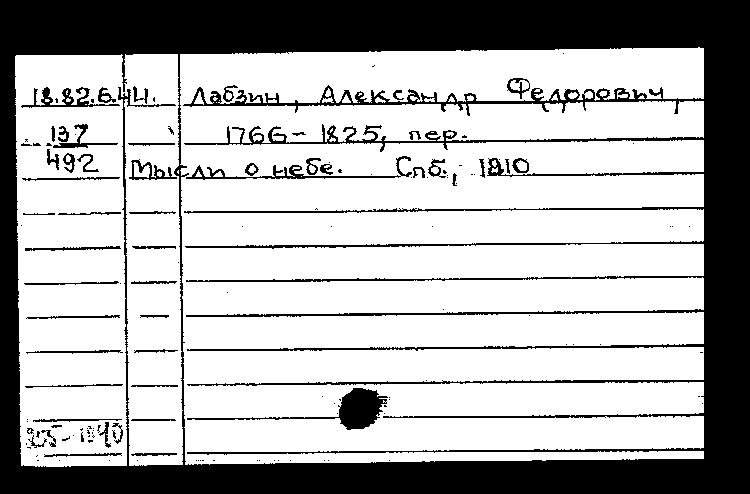 18.82.6.44. Лабзин, Александр Федорович,
137 1766-1825, пер.
492 Мысли о небе. Спб., 1810